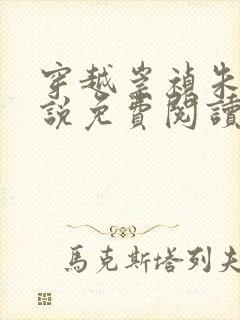 穿越崇禎朱
說免費閱讀
馬克斯塔列夫